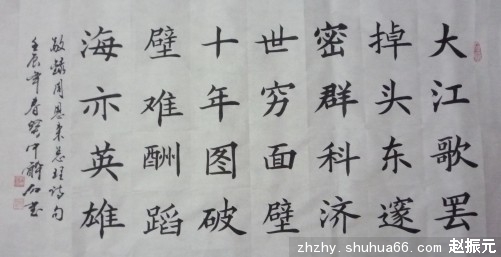 大江歌罢
掉头东邃
密群科济
世穷面壁
十年图破
壁难酬蹈
海亦英雄
敬录周恩来总理诗句
壬辰年春 石书
zhzhy.shuhua66.com 赵振元